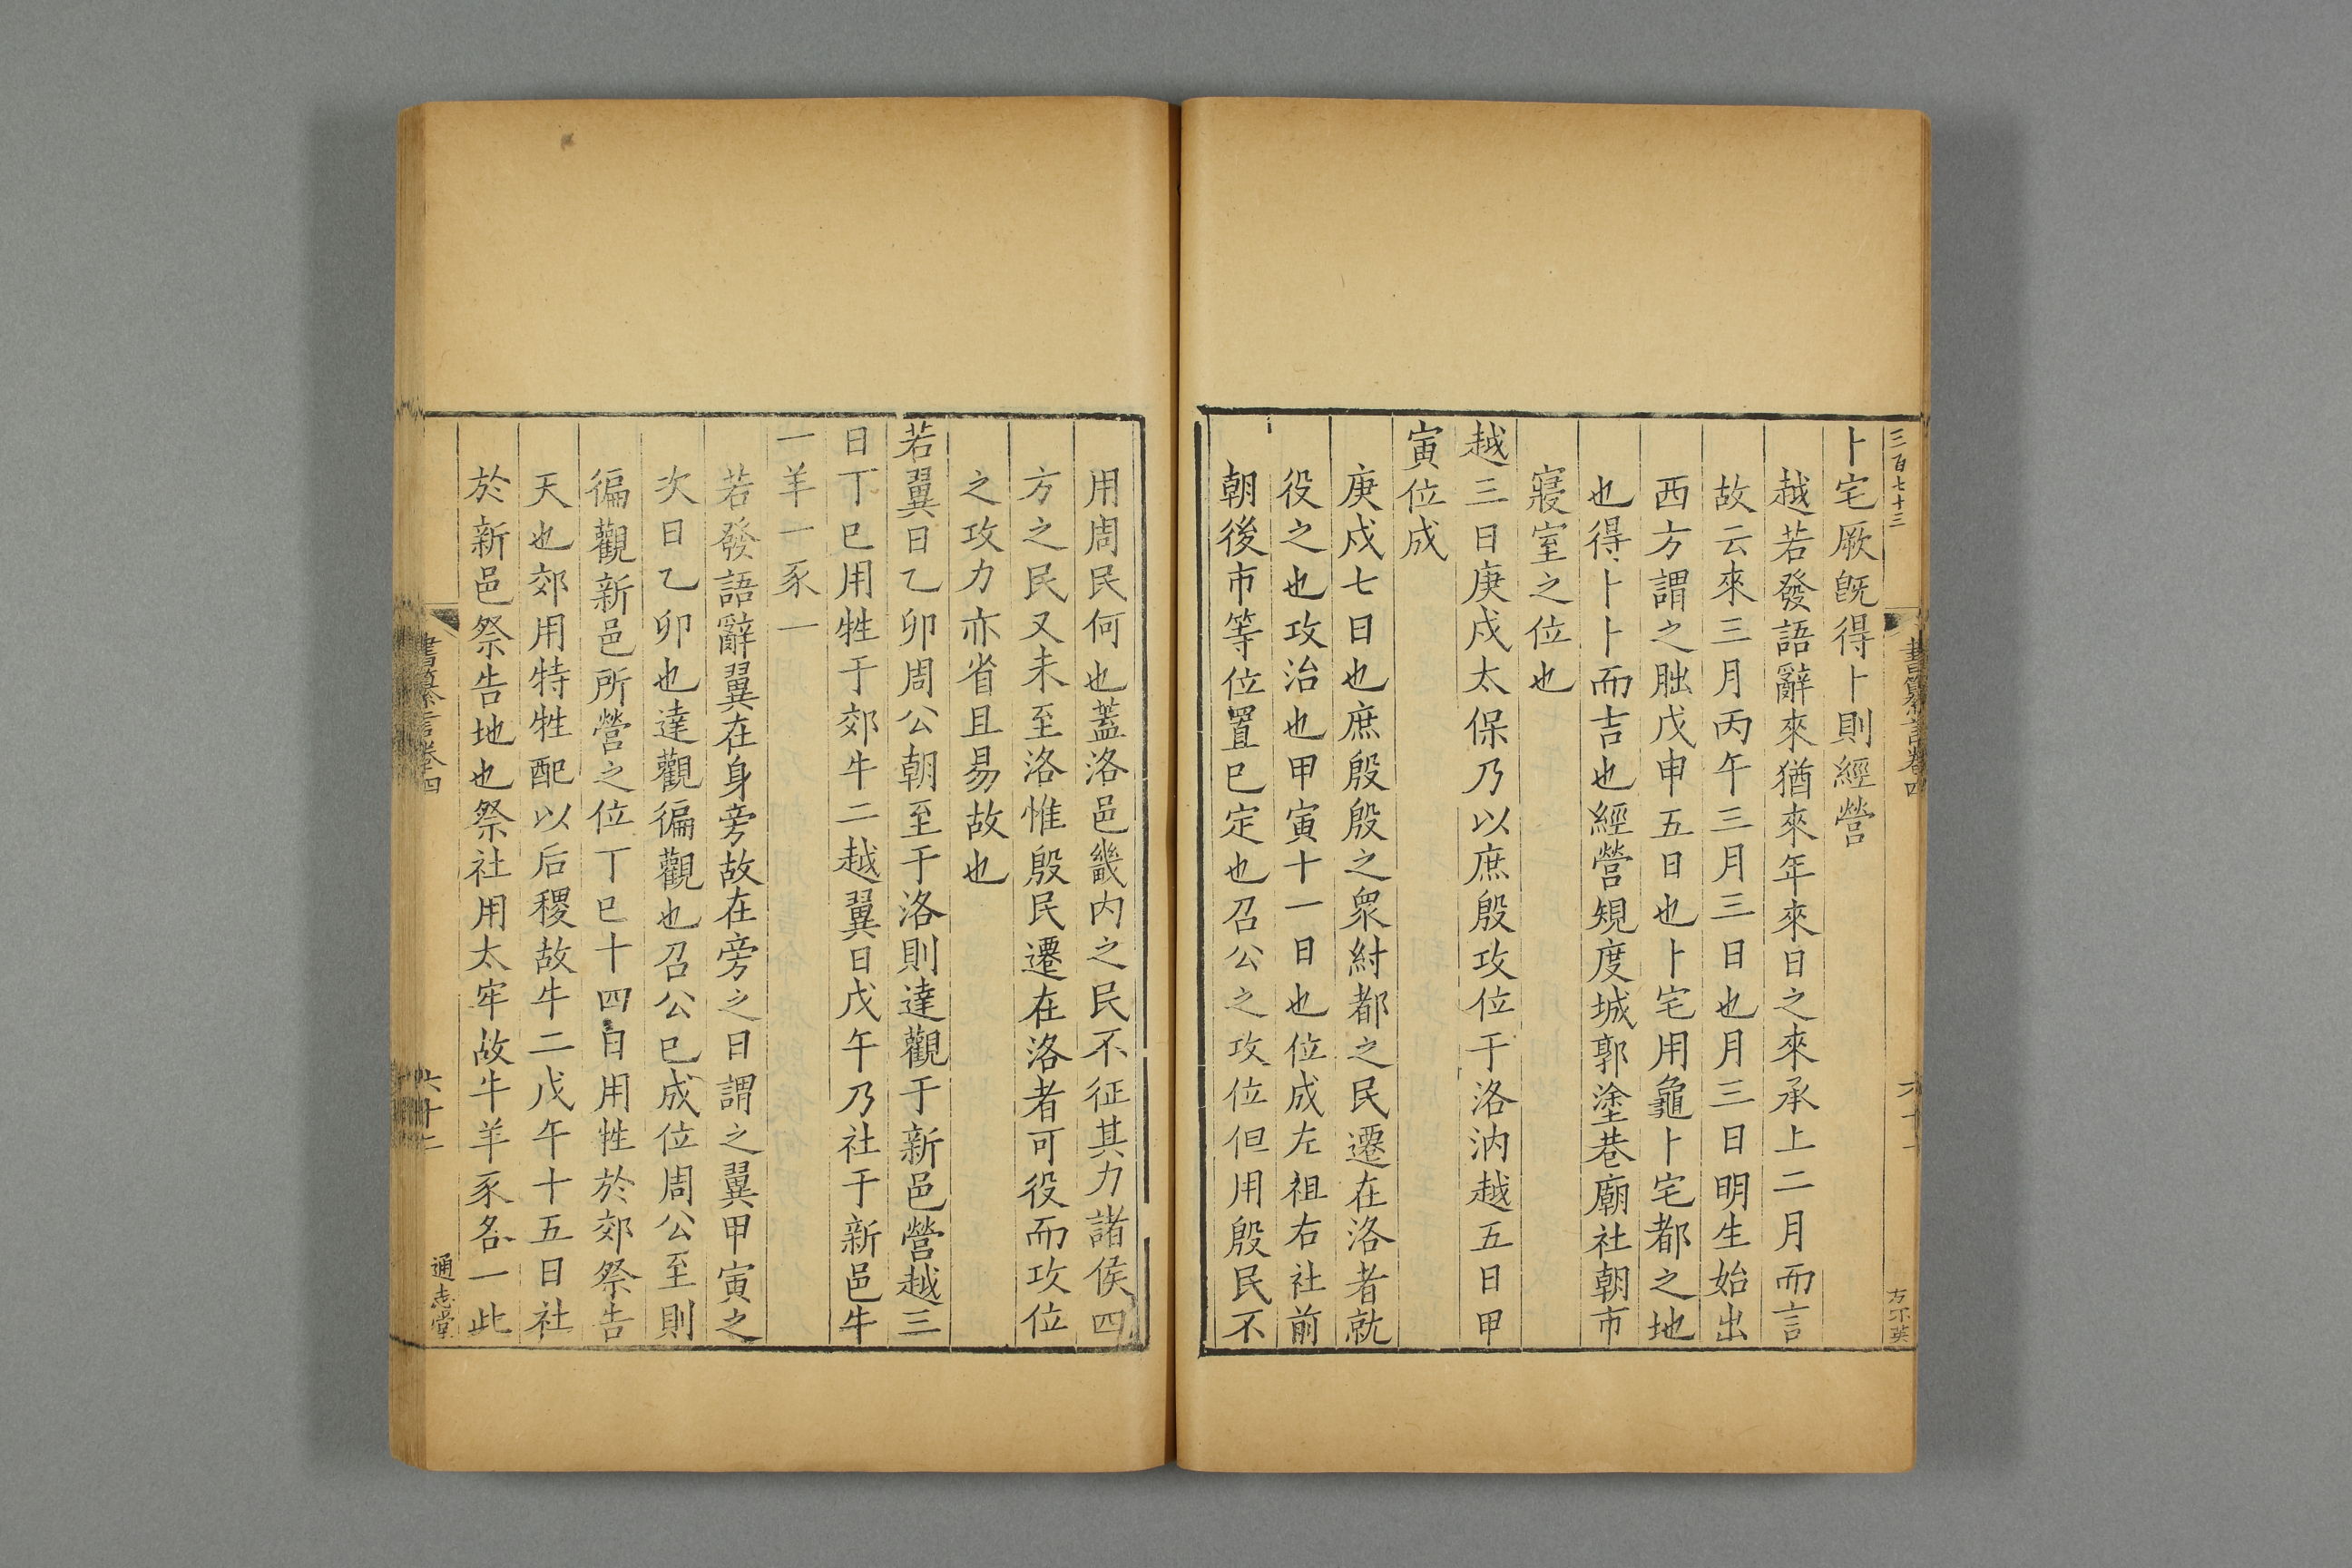 三百七十三
書纂言卷四
卜宅厥旣得卜則經營
越若發語辭來猶來年來日之來承上二月而言
故云來三月丙午三月三日也月三日明生始出
西方謂之朏戊申五日也卜宅用龜卜宅都之地
也得卜卜而吉也經營規度城郭塗巷廟社朝市
寢室之位也
越三日庚戌太保乃以庶殷攻位于洛汭越五日甲
寅位成
庚戌七日也庶殷殷之衆紂都之民遷在洛者就
役之也攻治也甲寅十一日也位成左祖右社前
朝後市等位置已定也召公之攻位但用殷民不
用周民何也蓋洛邑畿内之民不征其力諸侯四
方之民又未至洛惟殷民遷在洛者可役而攻位
之攻力亦省且易故也
若翼日乙卯周公朝至于洛則達觀于新邑營越三
日丁巳用牲于郊牛二越翼日戊午乃社于新邑牛
一羊一豕一
若發語辭翼在身旁故在旁之日謂之翼甲寅之
次日乙卯也達觀徧觀也召公已成位周公至則
徧觀新邑所營之位丁巳十四日用牲於郊祭告
天也郊用特牲配以后稷故牛二戊午十五日社
於新邑祭告地也祭社用太牢故牛羊豕各一此
書纂言卷四
通志堂